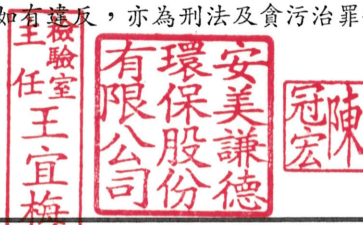 如有違反，亦為刑法及貪污治罪
檢驗室
主任
王宜梅
安美謙德
環保股份
有限公司
陳
冠宏